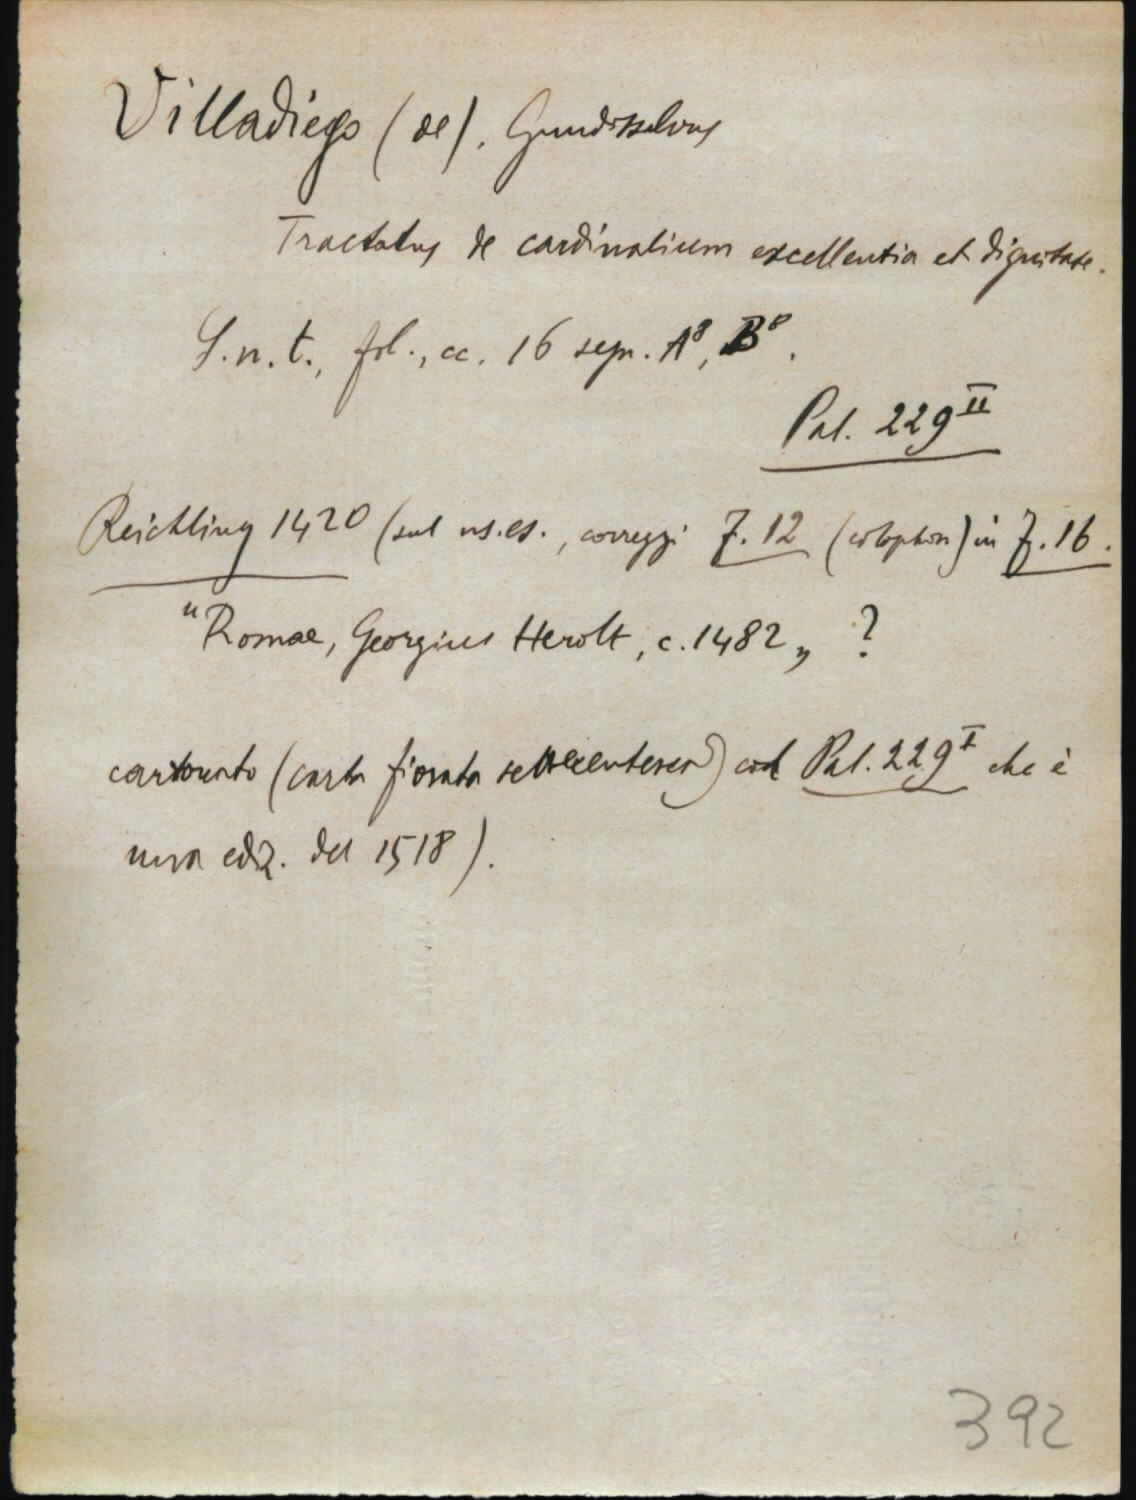 Villadiego (de), Gundissalvus
Tractatus de cardinalium excellentia et dignitate.
S.n.t., fol., cc. 16 segn. A⁸, B⁸.
Pal. 229 II
Reichling 1420 (sul ns. es., correggi Z. 12 (colophon) in Z. 16.
"Romae, Georgius Herolt, c. 1482„ ?
cartonato (carta fiorata settecentesca) col Pal. 229 I che è
una ediz. del 1518).
392